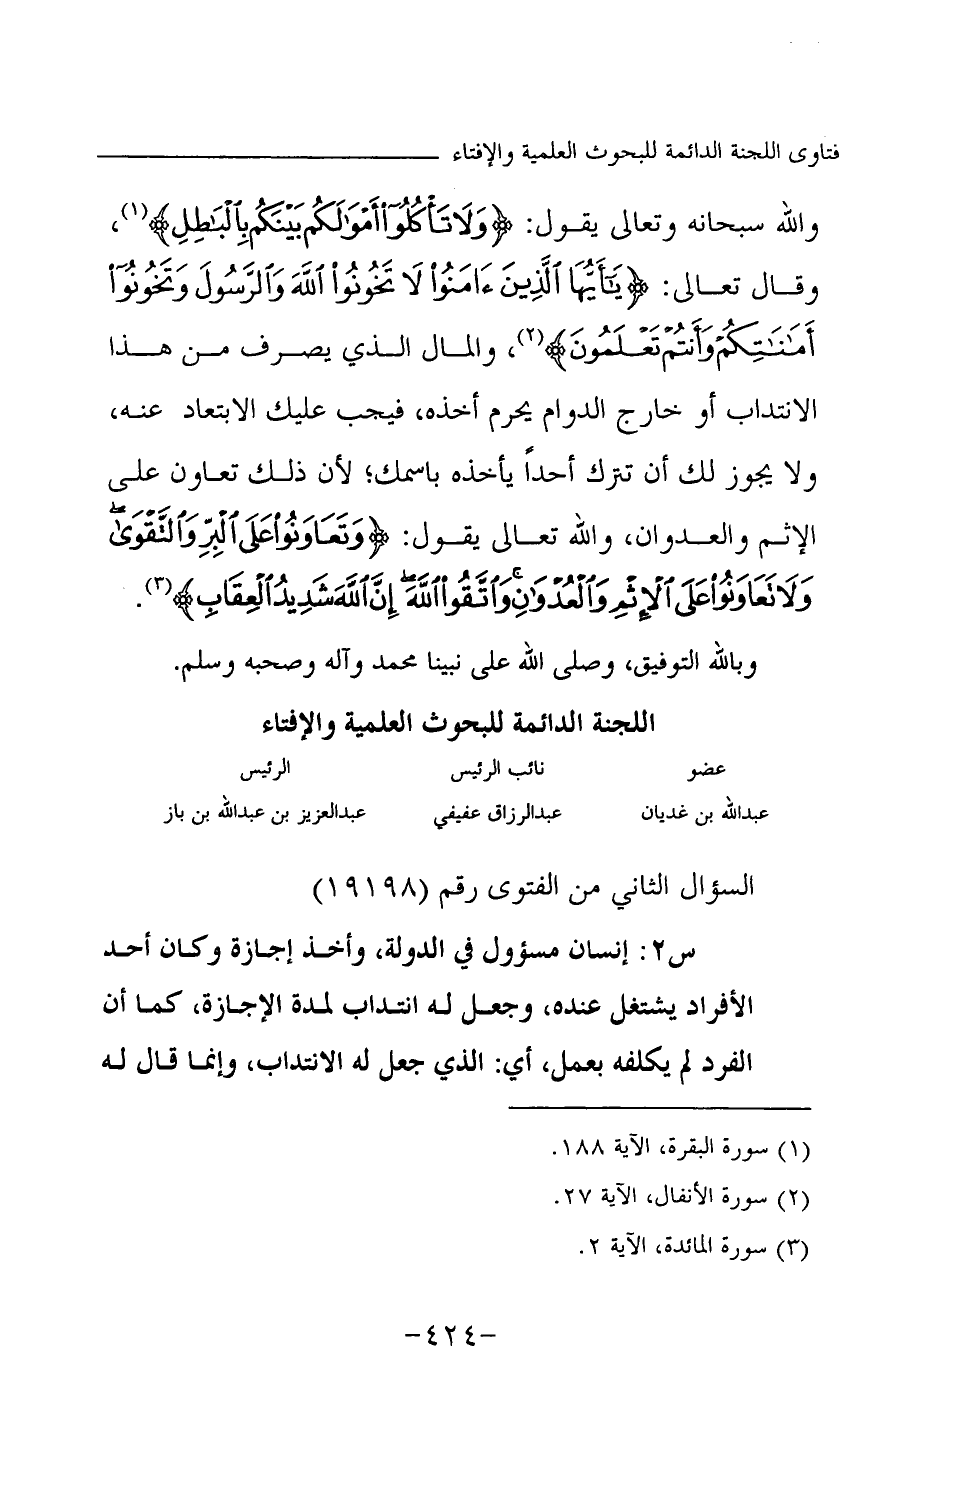 فتاوى اللجنة الدائمة للبحوث العلمية والإفتاء
والله سبحانه وتعالى يقول: ﴿وَلَا تَأْكُلُوٓا۟ أَمْوَٰلَكُم بَيْنَكُم بِٱلْبَٰطِلِ﴾(١)،
وقال تعالى: ﴿يَٰٓأَيُّهَا ٱلَّذِينَ ءَامَنُوا۟ لَا تَخُونُوا۟ ٱللَّهَ وَٱلرَّسُولَ وَتَخُونُوٓا۟
أَمَٰنَٰتِكُمْ وَأَنتُمْ تَعْلَمُونَ﴾(٢)، والمال الذي يصرف من هذا
الانتداب أو خارج الدوام يحرم أخذه، فيجب عليك الابتعاد عنه،
ولا يجوز لك أن تترك أحداً يأخذه باسمك؛ لأن ذلك تعاون على
الإثم والعدوان، والله تعالى يقول: ﴿وَتَعَاوَنُوا۟ عَلَى ٱلْبِرِّ وَٱلتَّقْوَىٰ ۖ
وَلَا تَعَاوَنُوا۟ عَلَى ٱلْإِثْمِ وَٱلْعُدْوَٰنِ ۚ وَٱتَّقُوا۟ ٱللَّهَ ۖ إِنَّ ٱللَّهَ شَدِيدُ ٱلْعِقَابِ﴾(٣).
وبالله التوفيق، وصلى الله على نبينا محمد وآله وصحبه وسلم.
اللجنة الدائمة للبحوث العلمية والإفتاء
عضو نائب الرئيس الرئيس
عبدالله بن غديان عبدالرزاق عفيفي عبدالعزيز بن عبدالله بن باز
السؤال الثاني من الفتوى رقم (١٩١٩٨)
س٢: إنسان مسؤول في الدولة، وأخذ إجازة وكان أحد
الأفراد يشتغل عنده، وجعل له انتداب لمدة الإجازة، كما أن
الفرد لم يكلفه بعمل، أي: الذي جعل له الانتداب، وإنما قال له
(١) سورة البقرة، الآية ١٨٨.
(٢) سورة الأنفال، الآية ٢٧.
(٣) سورة المائدة، الآية ٢.
-٤٢٤-